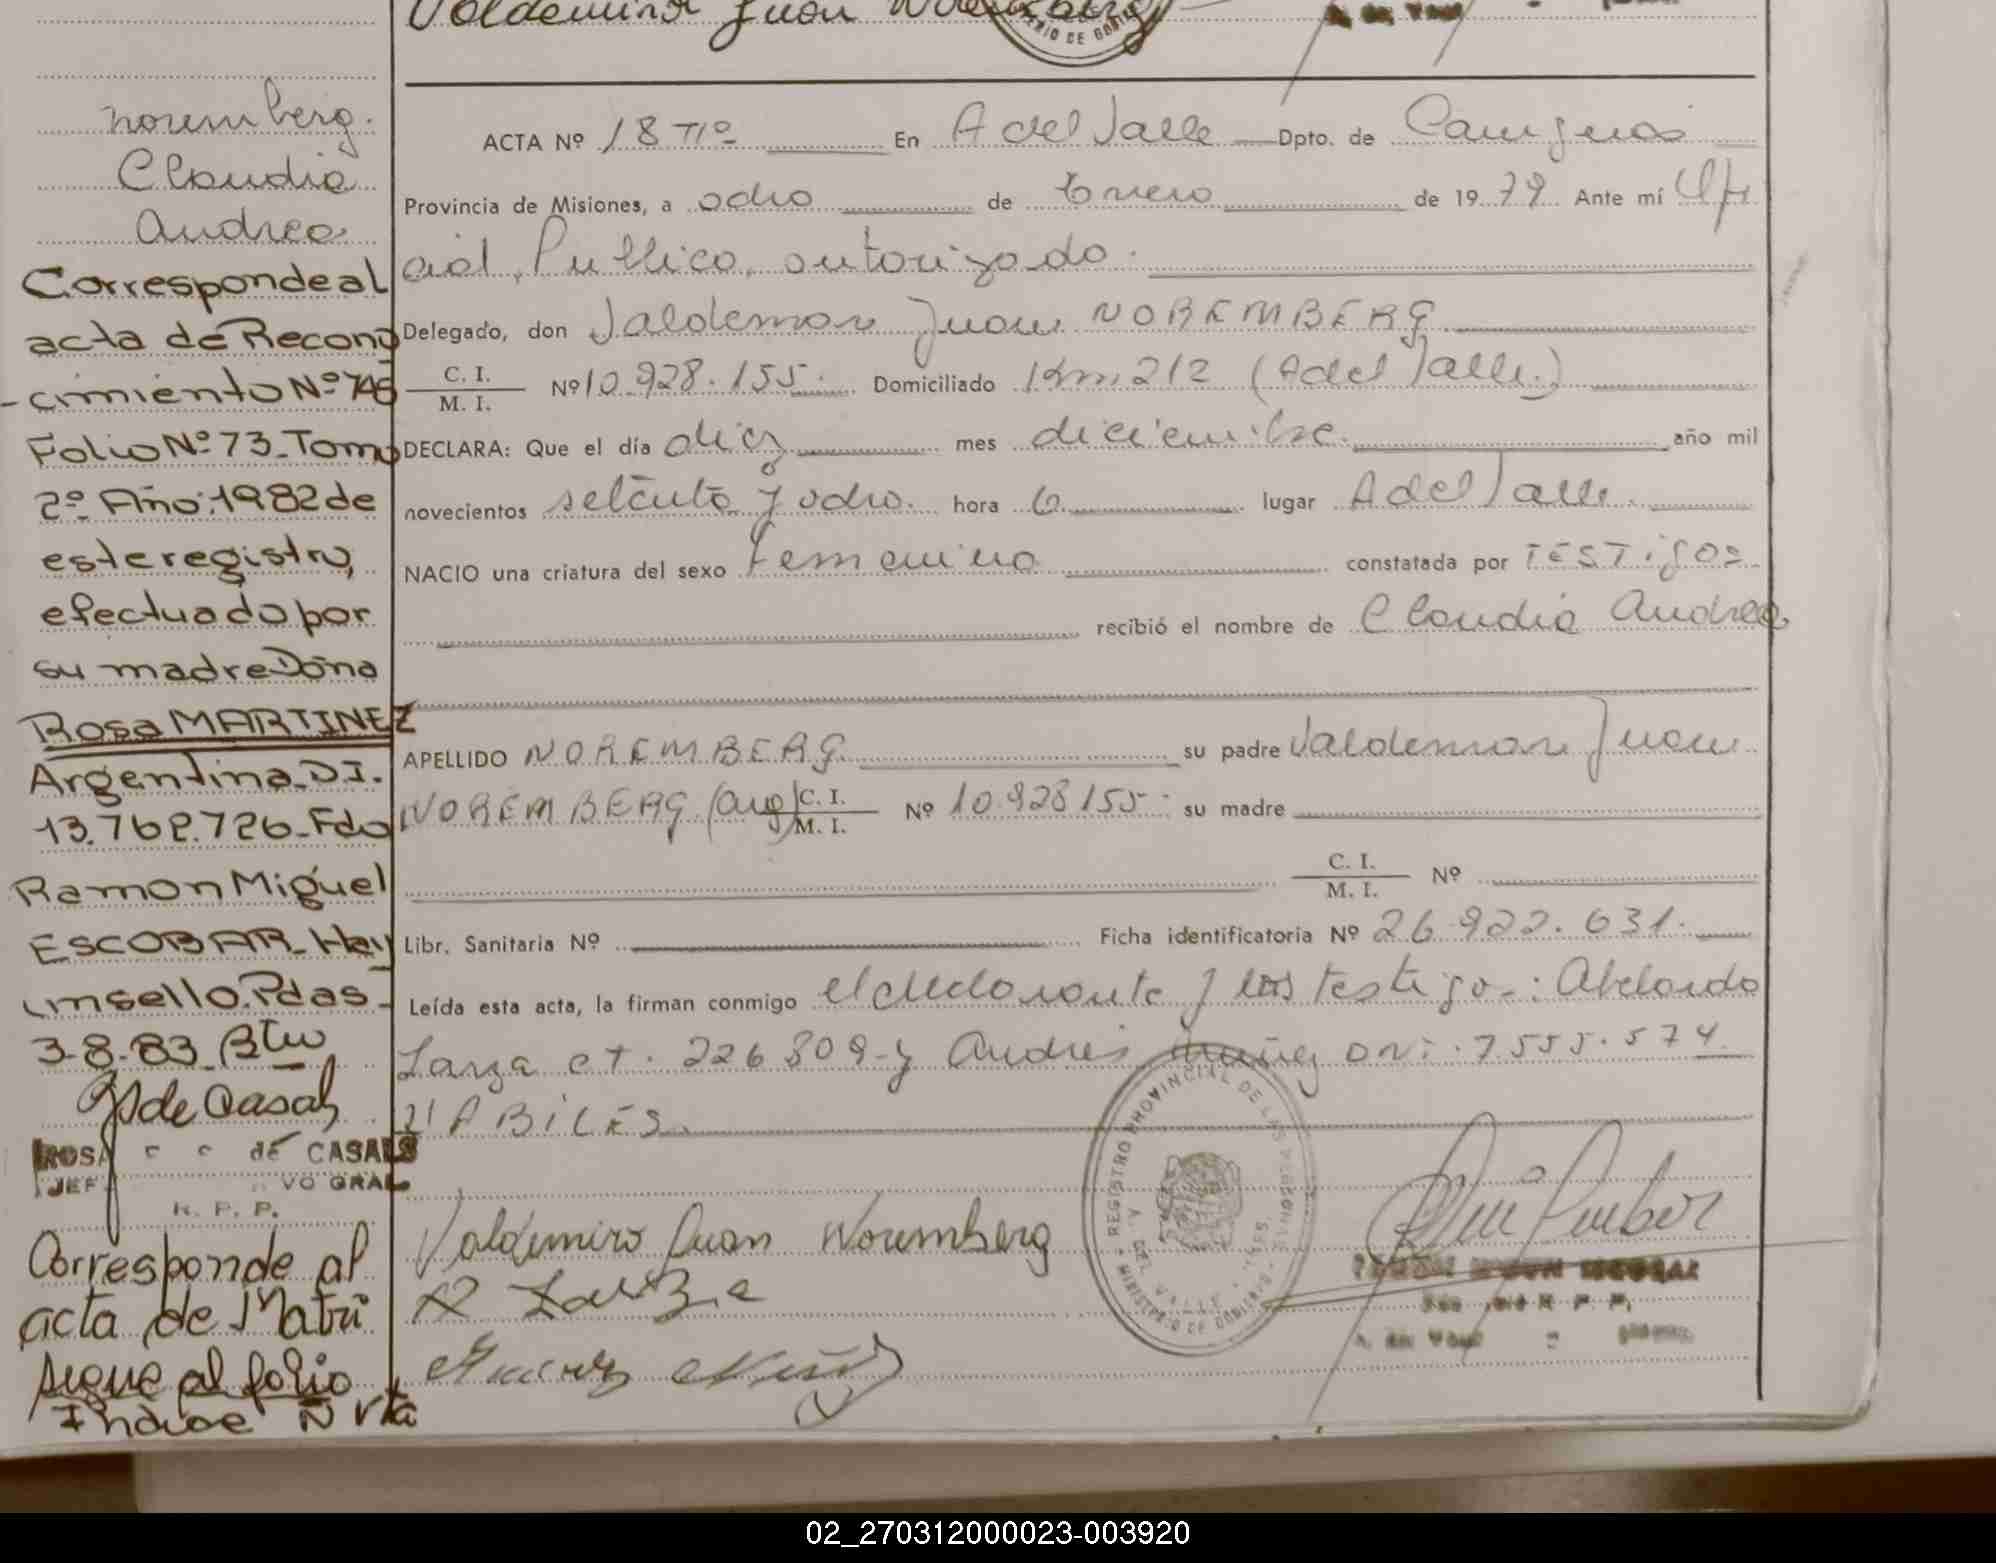 Valdemiro Juan Noremberg
noremberg.
Claudia
Andrea
Corresponde al
acta de Recono
-cimiento Nº 746
Folio Nº 73_Tomo
2º Año:1982 de
este registro,
efectuado por
su madre Doña
Rosa MARTINEZ
Argentina_D.I.
13.762.726_Fdo
Ramon Miguel
ESCOBAR_Hay
un sello.Pdas_
3-8-83
de Casals
ROSA de CASALS
JEF VO GRAL
R. P. P.
Corresponde al
acta de Matri
sigue al folio
Indice N vta
ACTA Nº 18 Tº En A del Valle Dpto. de Cainguas
Provincia de Misiones, a ocho de Enero de 1979 Ante mí Ofi
cial Publico autorizado.
Delegado, don Valdemar Juan NOREMBERG
C. I.
M. I. Nº 10.928.155. Domiciliado Km 212 (A del Valle.)
DECLARA: Que el día diez mes diciembre. año mil
novecientos setenta y ocho. hora 6 lugar A del Valle.
NACIO una criatura del sexo Femenino constatada por TESTigos
recibió el nombre de Claudia Andrea
APELLIDO NOREMBERG su padre Valdemar Juan
NOREMBERG (arg) C. I.
M. I. Nº 10.928155. su madre
C. I.
M. I. Nº
Libr. Sanitaria Nº Ficha identificatoria Nº 26.922.631.
Leída esta acta, la firman conmigo el declarante y los testigos: Abelardo
Zarza et. 226809 y Andrés Nuñez DNi. 7555.574
HABiLES.
REGISTRO PROVINCIAL DE LAS PERSONAS
MINISTERIO DE GOBIERNO
A. DEL VALLE
Valdemiro Juan Noremberg
A Zarza
RAMON MIGUEL ESCOBAR
R. P. P.
A. del Valle
02_270312000023-003920